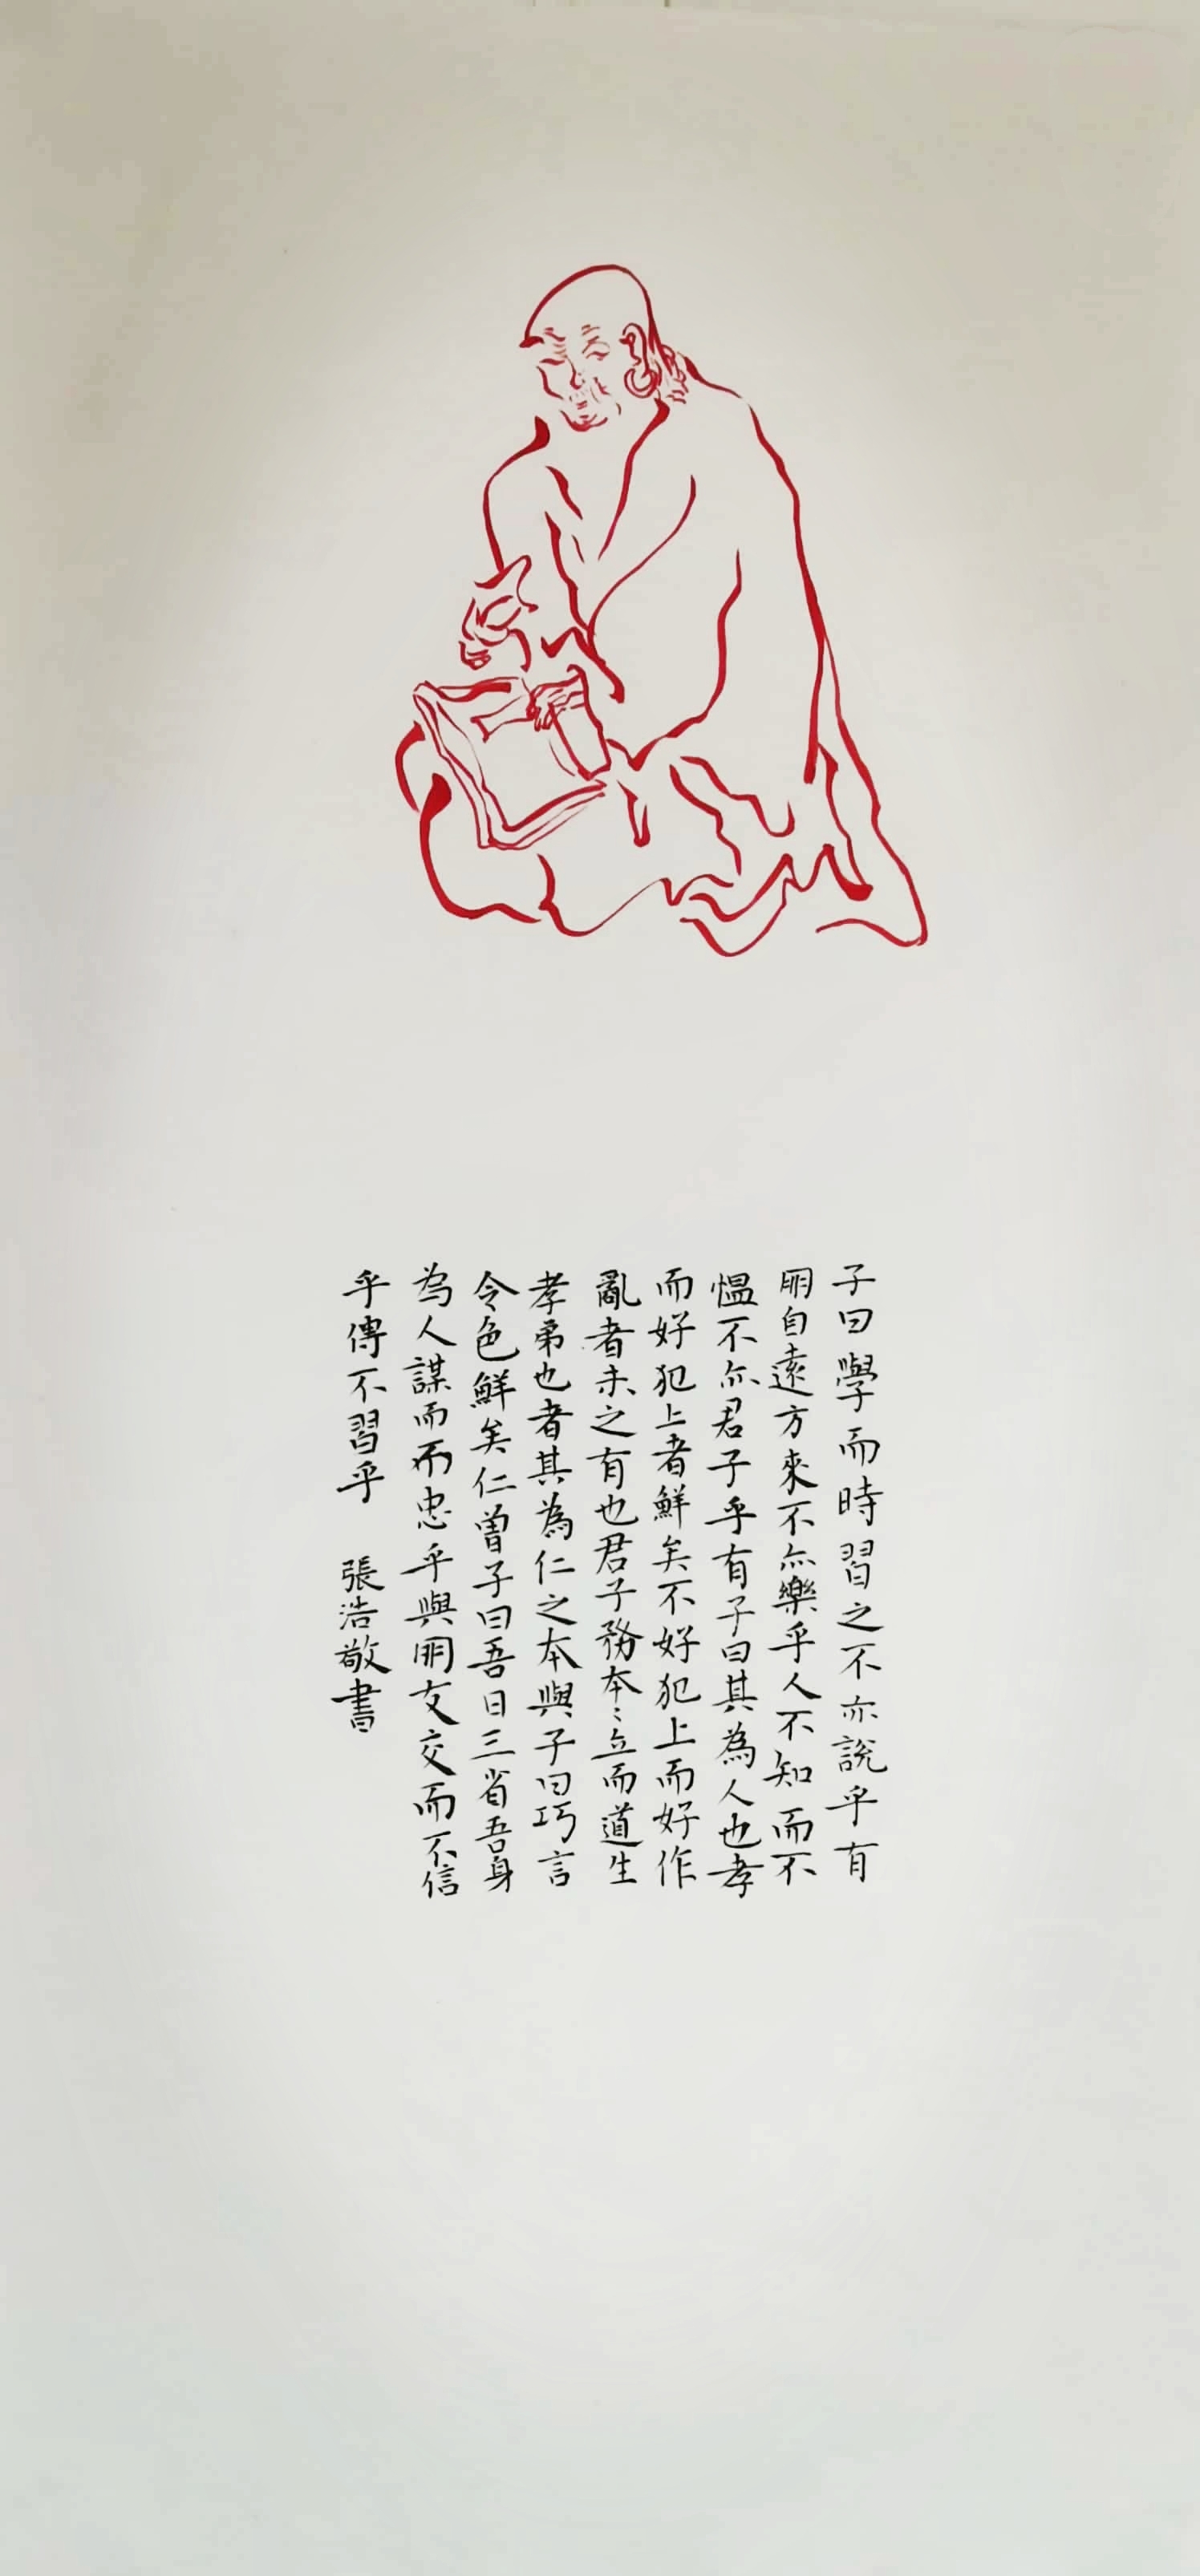 子曰學而時習之不亦說乎有
朋自遠方來不亦樂乎人不知而不
慍不亦君子乎有子曰其為人也孝
而好犯上者鮮矣不好犯上而好作
亂者未之有也君子務本〻立而道生
孝弟也者其為仁之本與子曰巧言
令色鮮矣仁曾子曰吾日三省吾身
為人謀而不忠乎與朋友交而不信
乎傳不習乎 張浩敬書